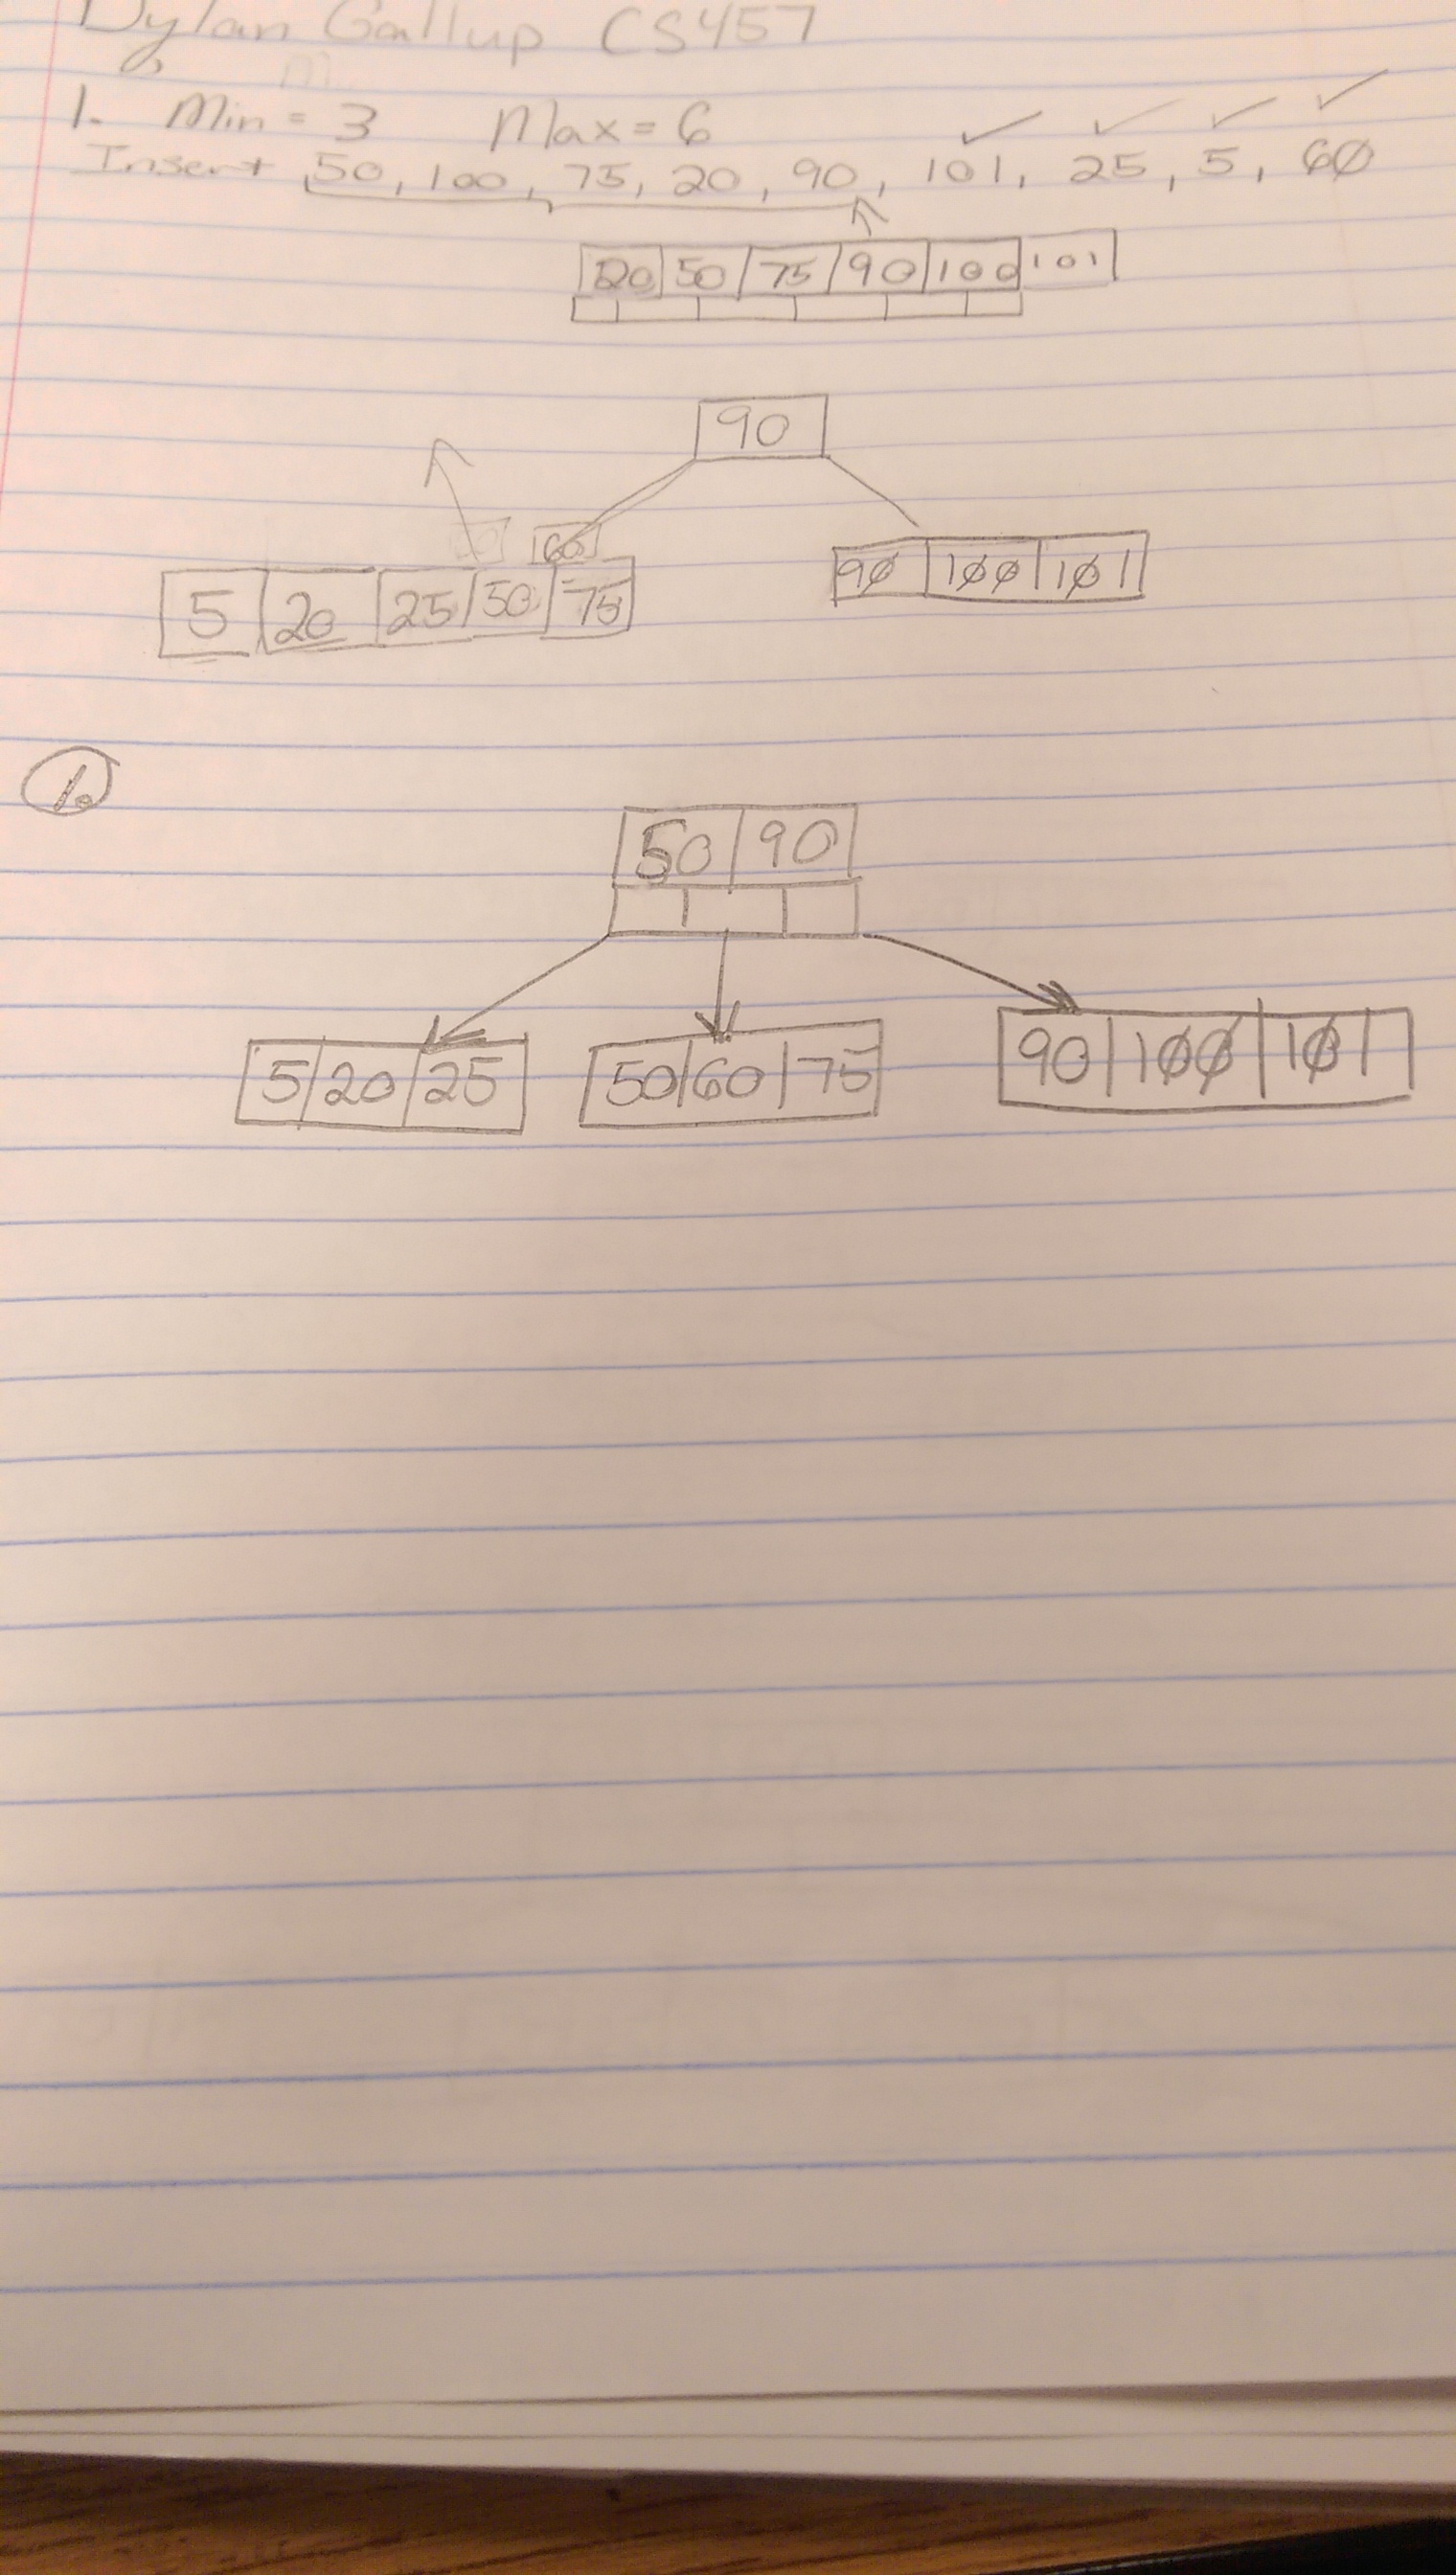 Dylan Gallup CS457
1. Min = 3 Max = 6
Insert 50, 100, 75, 20, 90, 101, 25, 5, 60
20 50 75 90 100 101
90
60
5 20 25 50 75
90 100 101
1.
50 90
5 20 25
50 60 75
90 100 101